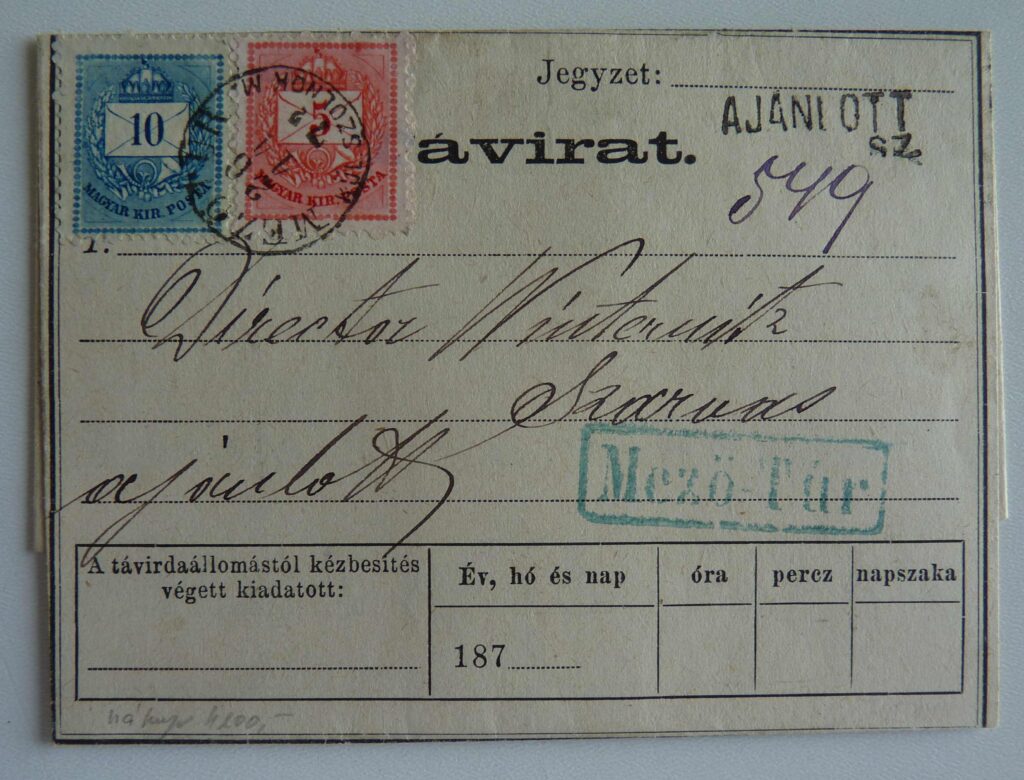 Jegyzet:
10
MAGYAR KIR. POSTA
5
MAGYAR KIR. POSTA
ávirat.
AJÁNLOTT
SZ.
549
1.
Director Winternitz
Szarvas
ajánlott
Mező-Túr
A távirdaállomástól kézbesítés
végett kiadatott:
Év, hó és nap
óra
percz
napszaka
187